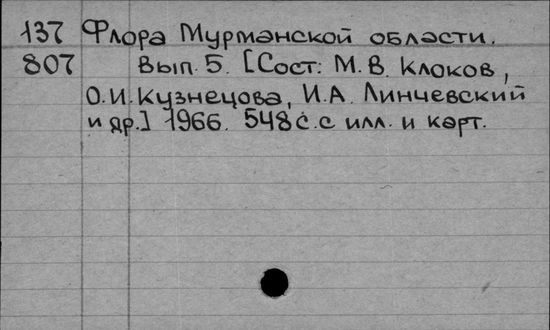 137 Флора Мурманской области.
807 Вып. 5. [Сост: М.В. Клоков,
О.И. Кузнецова, И.А. Линчевский
и др.] 1966. 548с. с илл. и карт.